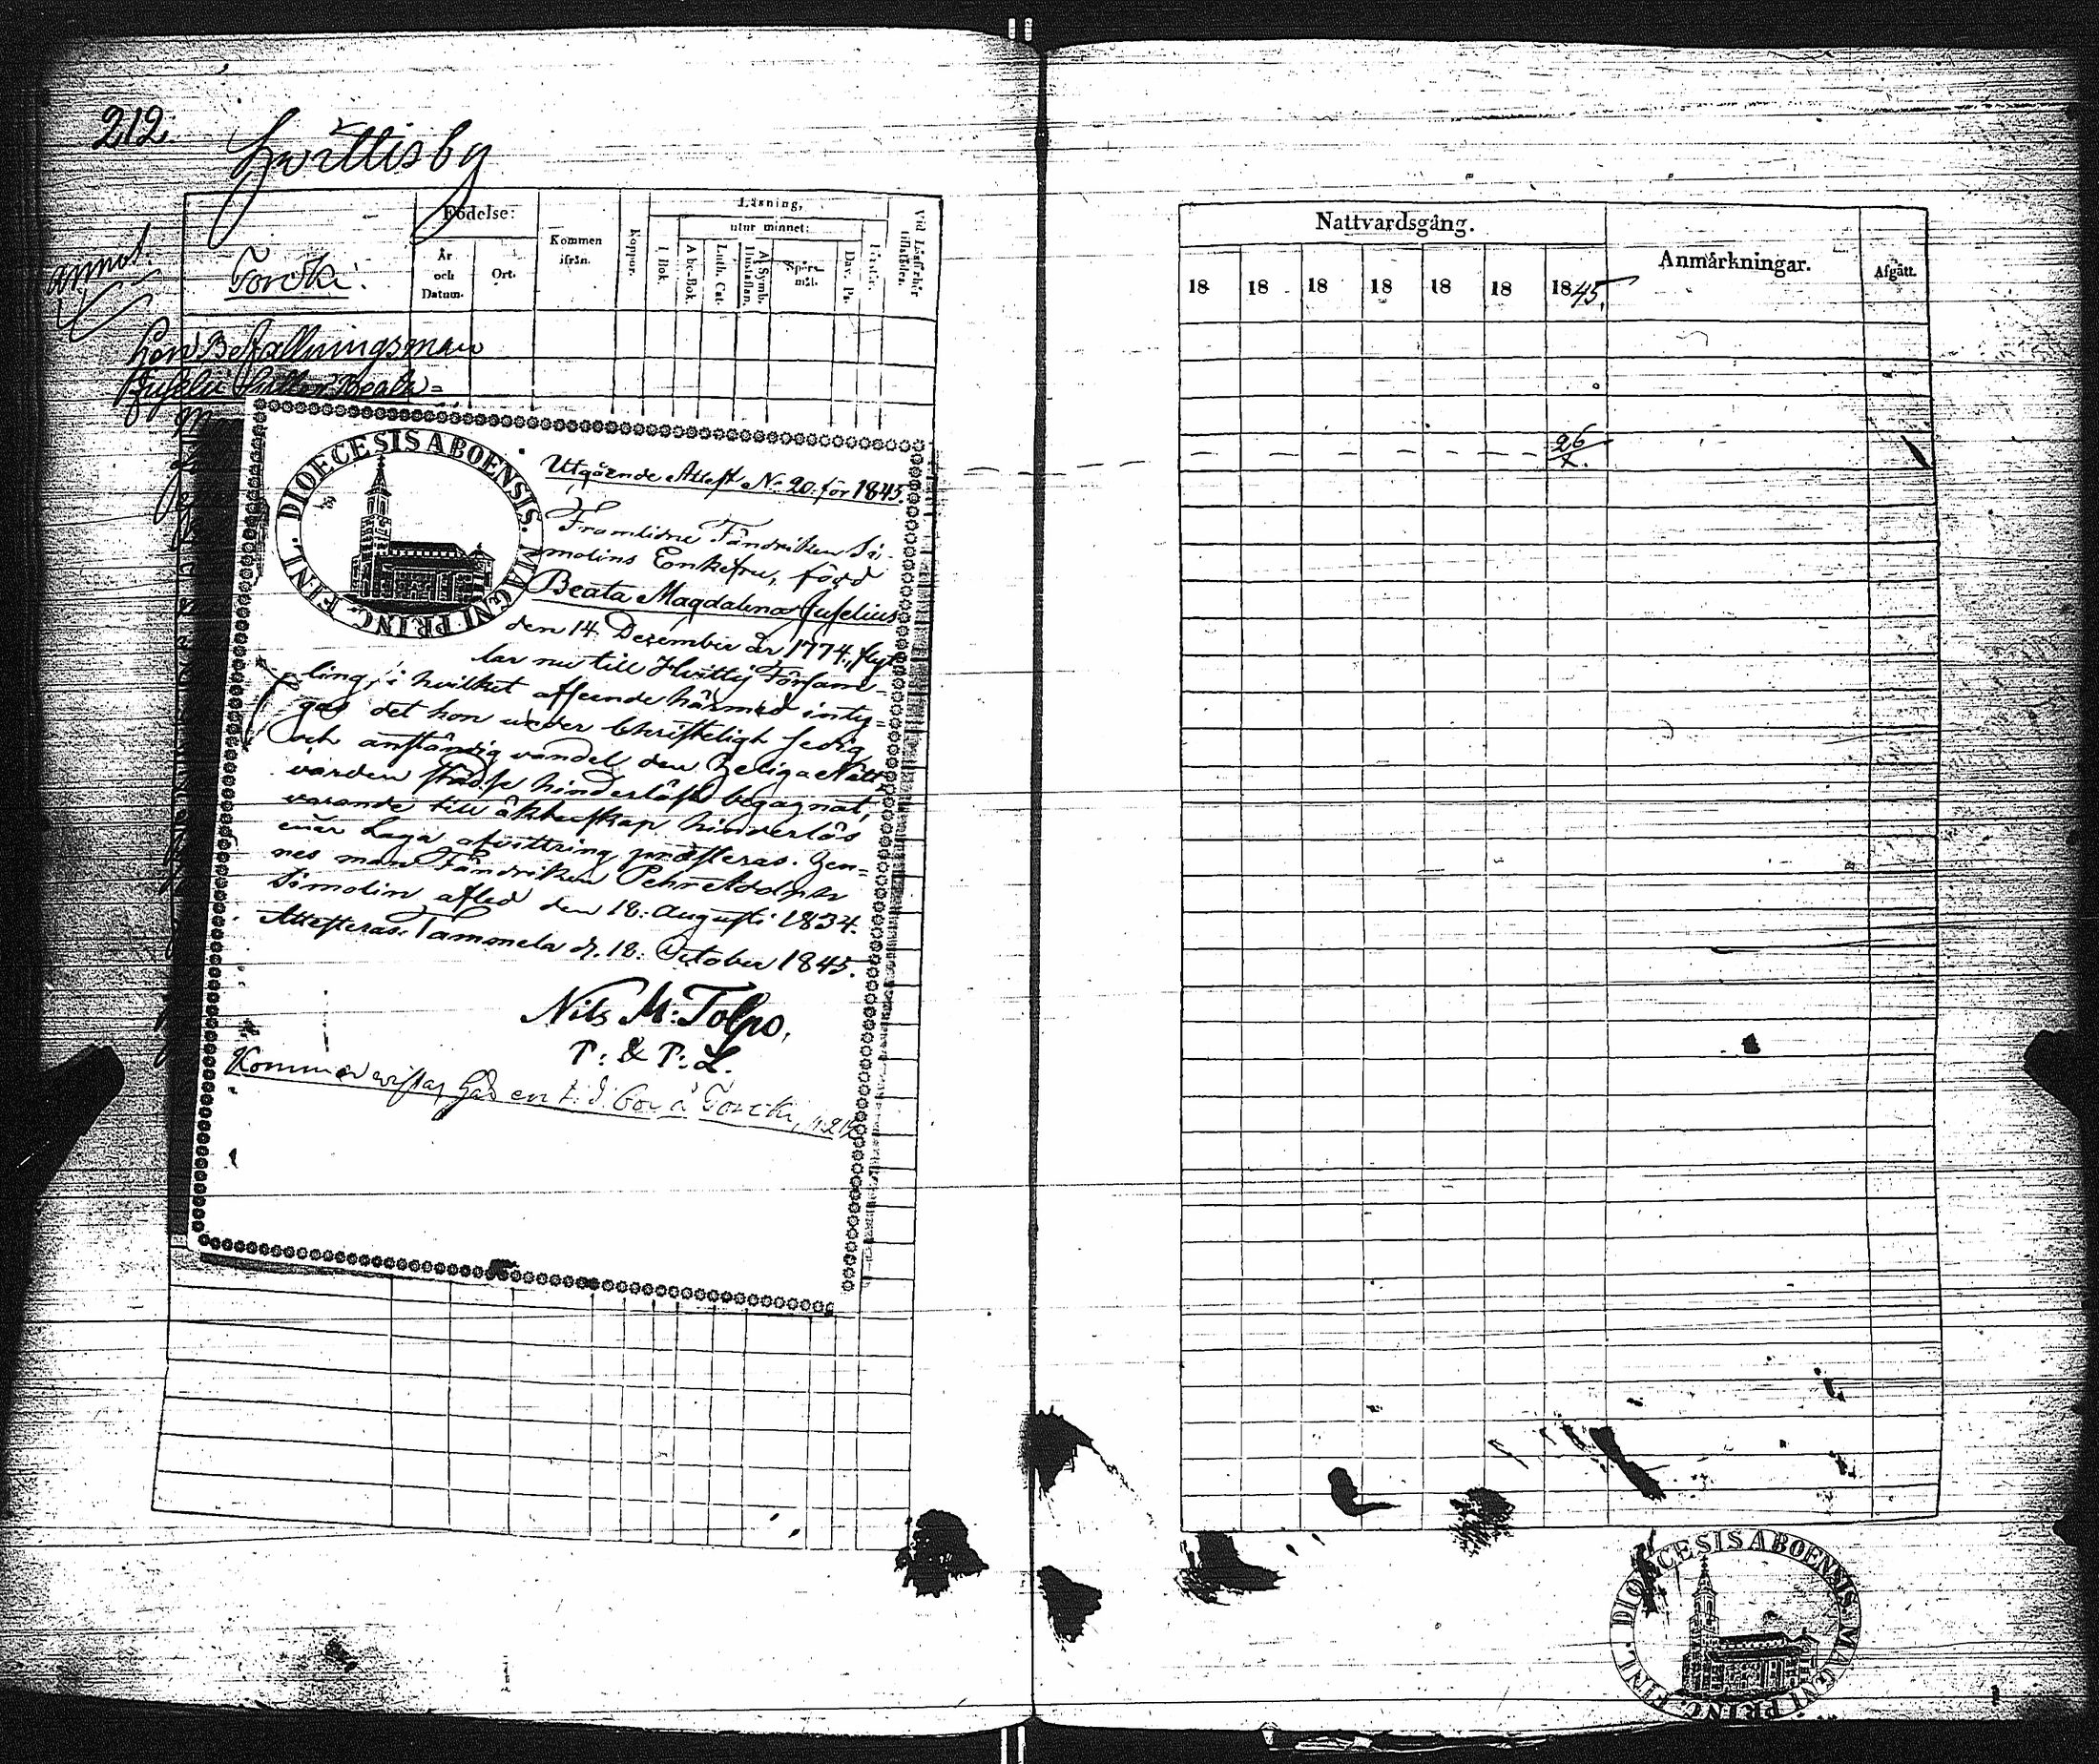 212.
Hvittisby
annot.
Torcki:
Födelse:
År och Datum.
Ort.
Kommen ifrån.
Koppor.
Läsning,
I Bok.
utur minnet:
Abc-Bok.
Luth. Cat.
A. Symb. Hustaflan.
Spörsmål.
Dav. Ps.
Vid Läsförhör
Hon Befallningsman
Juselii Enka Beata=
DIOECESIS ABOENSIS. MAGNI PRINC. FINL.
Utgående Attest No. 20. för 1845.
Framlidne Fändriken Si-
molins Enkefru, född
Beata Magdalena Juselius
den 14. December år 1774, flyt-
tar nu till Hvittis Försam-
ling, i hvilket afseende härmed inty=
gas det hon under Christeligt sedig
och anständig vandel, den Heliga Natt-
varden städse hinderlöst begagnat,
varande till äktenskap hinderlös
enär Laga afvittring præsteras. Hen=
nes man Fändriken Pehr Adolph
Simolin afled den 18. Augusti 1834.
Attesteras. Tammela d. 18. October 1845.
Nils M: Tolpo,
P: & P: L.
Torcki,
Nattvardsgång.
18 18 18 18 18 18 1845.
Anmärkningar.
Afgått.
26
X.
DIOECESIS ABOENSIS. MAGNI PRINC. FINL.